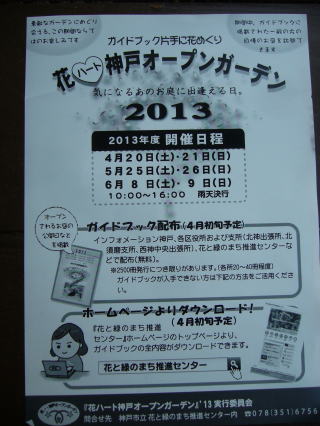 素敵なガーデンにめぐり
会える、この時期ならで
はのお楽しみです
期間中、ガイドブックに
掲載された一般の方の
自慢のお庭を訪問で
きます
ガイドブック片手に花めぐり
花ハート神戸オープンガーデン
気になるあのお庭に出逢える日。
2013
2013年度 開催日程
4月20日(土)・21日(日)
5月25日(土)・26日(日)
6月 8日(土)・ 9日(日)
10:00～16:00 雨天決行
オープン
されるお庭の
公開日など
を掲載
ガイドブック配布(4月初旬予定)
インフォメーション神戸、各区役所および支所(北神出張所、北
須磨支所、西神中央出張所)、花と緑のまち推進センターな
どで配布(無料)。
※2500冊発行につき限りがあります。(各所20～40冊程度)
ガイドブックが入手できない方は下記の方法をご活用くださ
い。
ホームページよりダウンロード!
(4月初旬予定)
『花と緑のまち推進
センター』ホームページのトップページより、
ガイドブックの全内容がダウンロードできます。
花と緑のまち推進センター
『花ハート神戸オープンガーデン』'13 実行委員会
問合せ先 神戸市立 花と緑のまち推進センター内 ☎078(351)6756